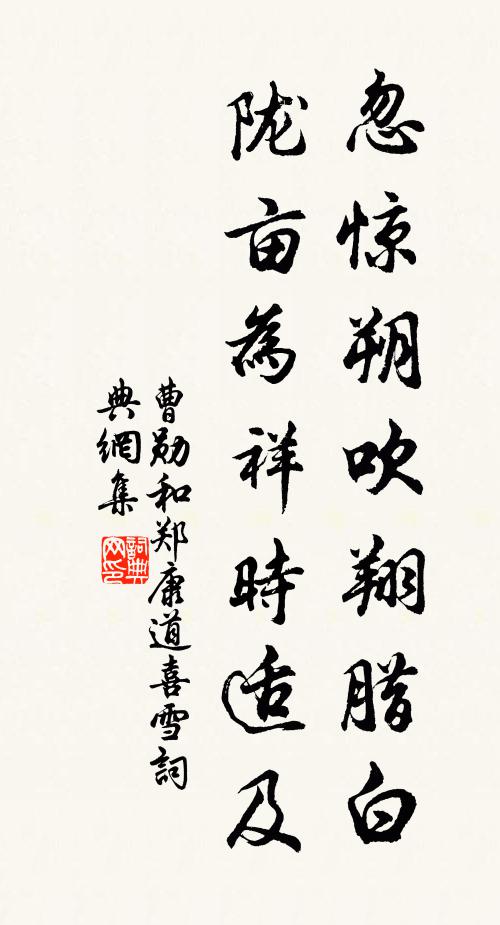 忽惊朔吹翔腊白
陇亩為祥時适及
曹勋和郑康道喜雪詞
典網集
詞典网印